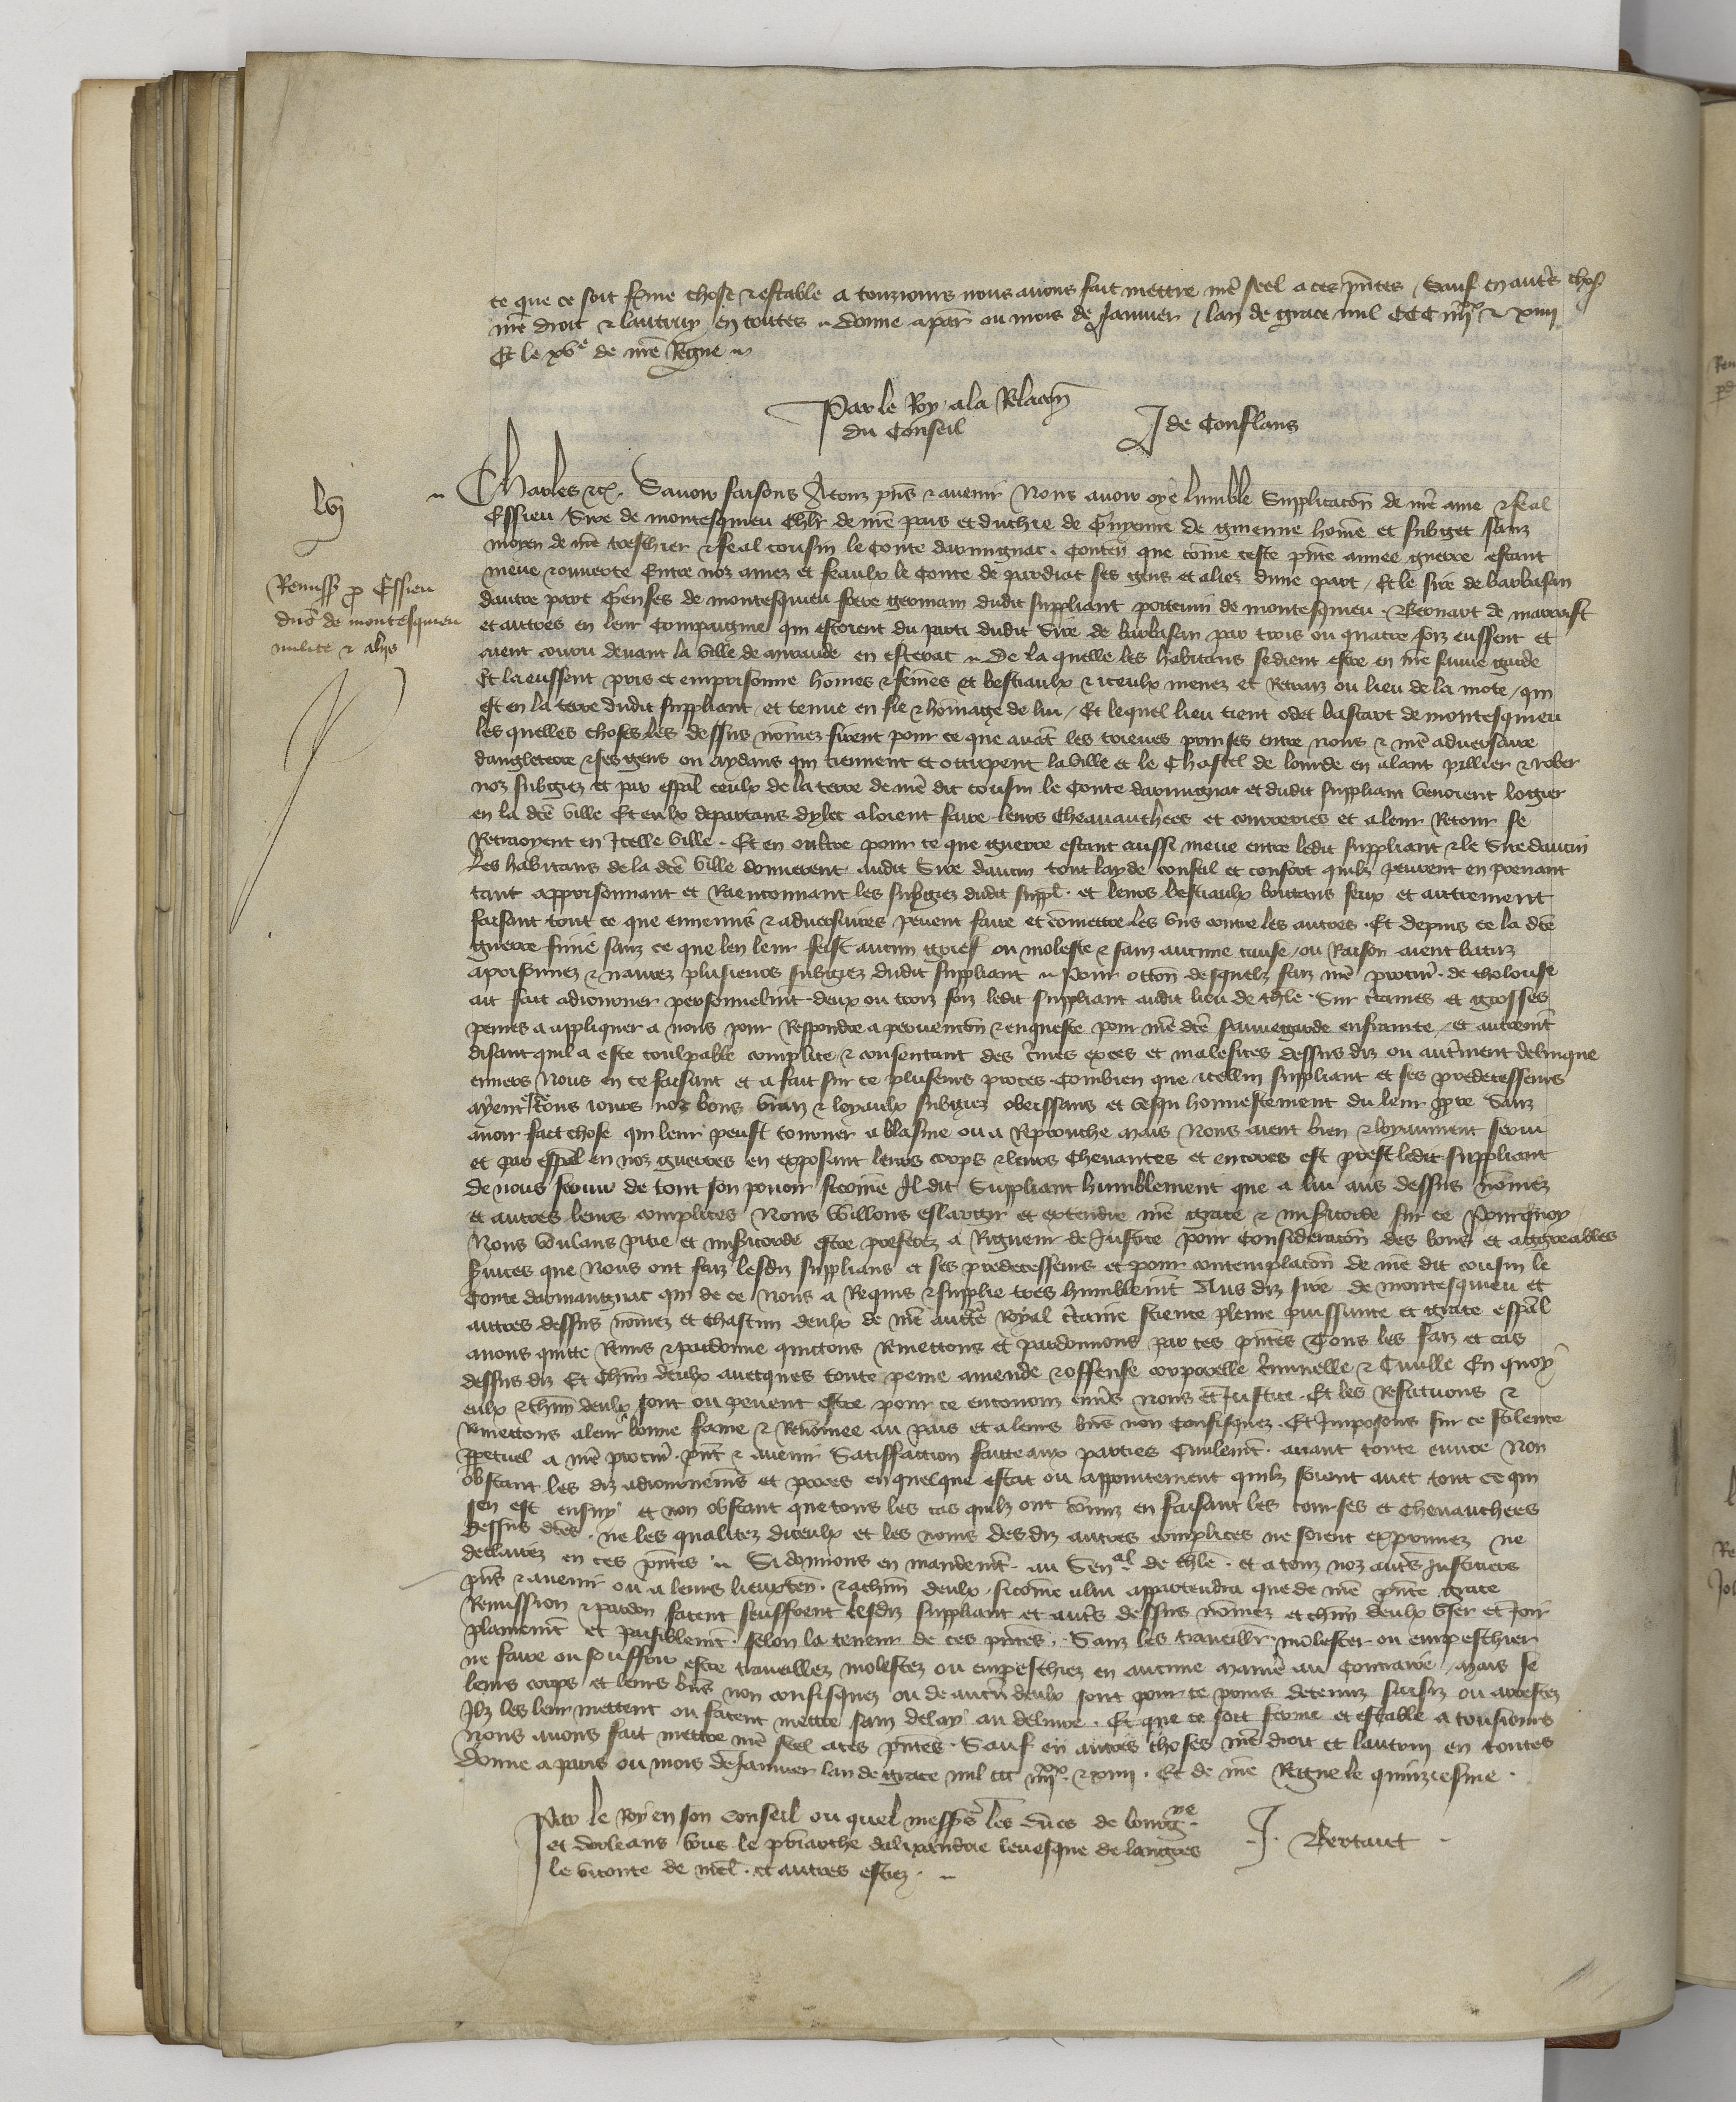 te que ce soit ferme chose & estable a touzjours nous avons fait mettre nre seel a ces pntes / Sauf en autres choses
nre droit & lautruy en toutes .. Donne a paris ou mois de Janvier / lan de grace mil CCC iiijxx & xiiij
Et le xve de nre Regne ..
Par le Roy a la Relacon
du Conseil
J de Conflans
lvj
Charles etc. Savoir faisons A touz pns & avenir Nous avoir oye lumble Supplicacon de nre ame & feal
Essieu Sire de montesquieu Chlr de nre pais et duchie de Guyenne de guienne home et subget sanz
moyen de nre treschier & feal cousin le Conte darmignac . Conten que come ceste pnte annee guerre estant
meue & ouverte Entre noz amez et feaulx le Conte de pardiac ses gens et aliez dune part / Et le sire de barbasan
dautre part Genses de montesquieu frere germain dudit suppliant portenin de montesquieu . Bernart de marrast
et autres en leur compaignie qui estoient du parti dudit Sire de barbasan par trois ou quatre foiz eussent et
aient couru devant la ville de mirande en esterac .. De la quelle les habitans se dient estre en nre sauve garde
Et la eussent pris et emprisonne homes & femes et bestiaulx & iceulx menez et Retraiz ou lieu de la mote / qui
est en la terre dudit suppliant / et tenue en fie & homage de lui / Et lequel lieu tient odet bastart de montesquieu
les quelles choses les dessus nomez firent pour ce que avant les treves prinses entre nous & nre adversaire
dangleterre & ses gens ou aydans qui tiennent et occupent la ville et le Chastel de lourde en alant pillier & rober
noz subgiez et par espal ceulx de la terre de nre dit cousin le Conte darmignac et dudit suppliant venoient logier
en la dte ville Et eulx departans dylec aloient faire leurs chevauchees et courreries et a leur Retour se
Retraoyent en Icelle ville . Et en oultre pour ce que guerre estant aussi meue entre ledit suppliant & le Sire daucin
Les habitans de la dte ville donnerent audit Sire daucin tout layde conseil et confort quilz peurent en prenant
tant apprisonnant et Raenconnant les subgiez dudit suppl . et leurs bestiaulx boutans feux et autrement
faisant tout ce que ennemis & adversaires pevent faire et comettre les uns contre les autres . Et depuis ce la dte
guerre finie sanz ce que len leur feist aucun grief ou moleste & sanz aucune cause / ou Raison aient batuz
aprisonnez & navrez plusieurs subgiez dudit suppliant .. Pour occon desquelz faiz nre procur . de tholouse
ait fait adiourner personnelmt . deux ou trois foiz ledit suppliant audit lieu de thle . Sur ctaines et grosses
peines a appliquer a nous pour Respondre a prevencon & enqueste pour nre dte sauvegarde enfrainte / et autremt
disant quil a este coulpable complice & consentant des crimes exces et malefices dessus diz ou autrement delinque
envers Nous en ce faisant et a fait sur ce pluseurs proces . Combien que icellui suppliant et ses predecesseurs
ayent este tous iours noz bons vraiz & loyaulx subgiez obeissans et vesqu honnestement du leur ppre Sanz
avoir fait chose qui leur peust tourner a blasme ou a Reprouche mais Nous aient bien & loyaument servi
et par espal en noz guerres en exposant leurs corps & leurs chevances et encores est prest ledit suppliant
de nous servir de tout son povoir sicome Il dit Suppliant humblement que a lui aus dessus nomez
et autres leurs complices Nous Vueillons eslargir et extendre nre grace & misericorde sur ce Pourquoy
Nous voulans pitie et misericorde estre preferez a Rigueur de Justice pour Consideracon des bons et aggreables
services que Nous ont faiz lesdiz supplians et ses predecesseurs et pour contemplacon de nre dit cousin le
Conte darmaignac qui de ce Nous a Requis & supplie tres humblemt Aus diz sire de montesquieu et
autres dessus nomez et Chascun deulx de nre aucte Royal ctaine science pleine puissance et grace espal
avons quitte Remis & pardonne quictons Remettons et pardonnons par ces pntes Tous les faiz et cas
dessus diz Et Chun deulx avecques toute peine amende & offense corporelle criminelle & Civille En quoy
eulx & chun deulx sont ou pevent estre pour ce encouruz envers Nous et Justice . Et les Restituons &
Remettons a leur bonne fame & Renomee au pais et a leurs biens non confisquez . Et Imposons sur ce silence
ppetuel a nre procur . pnt & avenir Satisfaction faicte aux parties Civilemt . avant toute euvre Non
obstant les diz adiournemens et proces en quelque estat ou appointement quilz soient avec tout ce qui
sen est ensuy et non obstant que tous les cas quilz ont comis en faisant les courses et Chevauchees
dessus dtes . ne les qualitez diceulx et les noms des diz autres complices ne soient exprimez ne
declairez en ces pntes .. Si donnons en mandemt . au Senal . de thle . et a touz noz autres Justiciers
pns & avenir ou a leurs lieuxten . & a chun deulx . sicome a lui appartendra que de nre pnte grace
Remission & pardon facent seuffrent lesdiz suppliant et autres dessus nomez et chun deulx User et Joir
plainemt et paisiblemt . selon la teneur de ces pntes . Sanz les travaillr . molester ou empeschier
ne faire ou souffrir estre travaillez molestez ou empeschiez en aucune maniere au Contraire / mais se
leurs corps et leurs biens non confisquez ou de aucun deulx sont pour ce prins detenuz saisiz ou arrestez
Ilz les leur mettent ou facent mettre sanz delay au delivre . Et que ce soit ferme et estable a tousiours
Nous avons fait mettre nre seel a ces pntes . Sauf en autres choses nre droit et lautruy en toutes
Donne a paris ou mois de Janvier lan de grace mil ccc iiijxx & xiiij . Et de nre Regne le quinziesme .
Remiss p Essieu
dno de montesquieu
milite & aliis
Par le Roy en son Conseil ou quel messrs les ducs de bourgne
et dorleans Vous le priarche dalixandrie levesque de langres
le viconte de mel . et autres estiez . ..
J . Bertaut